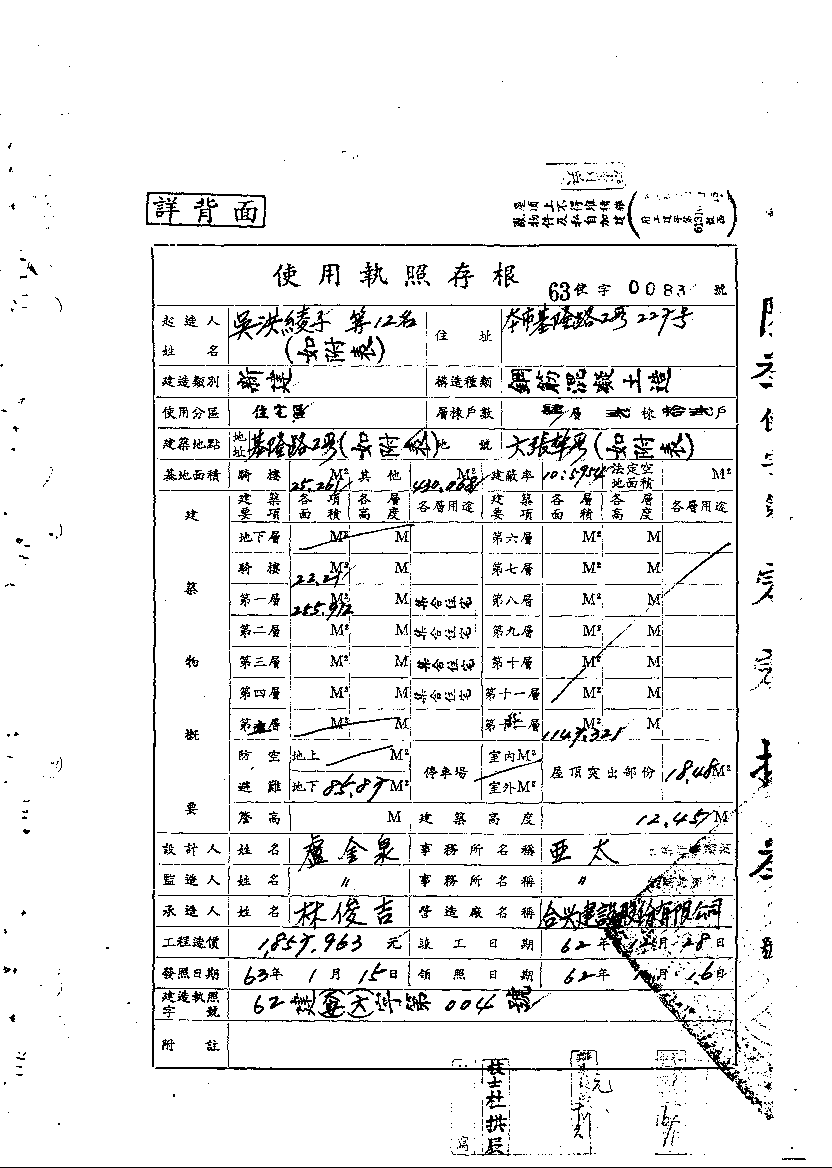 詳背面
屋頂上不得堆積雜
廢物件及私自加建
使用執照存根
63使字0083號
起造人姓名 吳洪綾子 等12名 (如附表) 住址 本市基隆路2段227号
建造類別 新建 構造種類 鋼筋混凝土造
使用分區 住宅區 層棟戶數 肆層 貳棟 拾貳戶
建築地點 地址 基隆路2段(如附表) 地號 大張犁段(如附表)
基地面積 騎樓 25.261 M² 其他 430.068 M² 建蔽率 法定空地面積 M²
建築物概要 建築要項 各項面積 各層高度 各層用途 建築要項 各層面積 各層高度 各層用途
地下層 M² M 第六層 M² M
騎樓 22.21 M² M 第七層 M² M
第一層 255.912 M² M 集合住宅 第八層 M² M
第二層 M² M 集合住宅 第九層 M² M
第三層 M² M 集合住宅 第十層 M² M
第四層 M² M 集合住宅 第十一層 M² M
第五層 M² M 1147.321 M² M
防空避難 地上 M² 停車場 室內M² 屋頂突出部份 18.48 M²
地下 85.87 M² 室外M²
簷高 M 建築高度 12.457 M
設計人 姓名 盧金泉 事務所名稱 亞太
監造人 姓名 〃 事務所名稱 〃
承造人 姓名 林俊吉 營造廠名稱 合兴建設股份有限公司
工程造價 1,857,963 元 竣工日期 62年 12月 28日
發照日期 63年 1月 15日 領照日期 62年 月 16日
建造執照字號 62建( )(大)字第004號
附註
技士杜拱辰